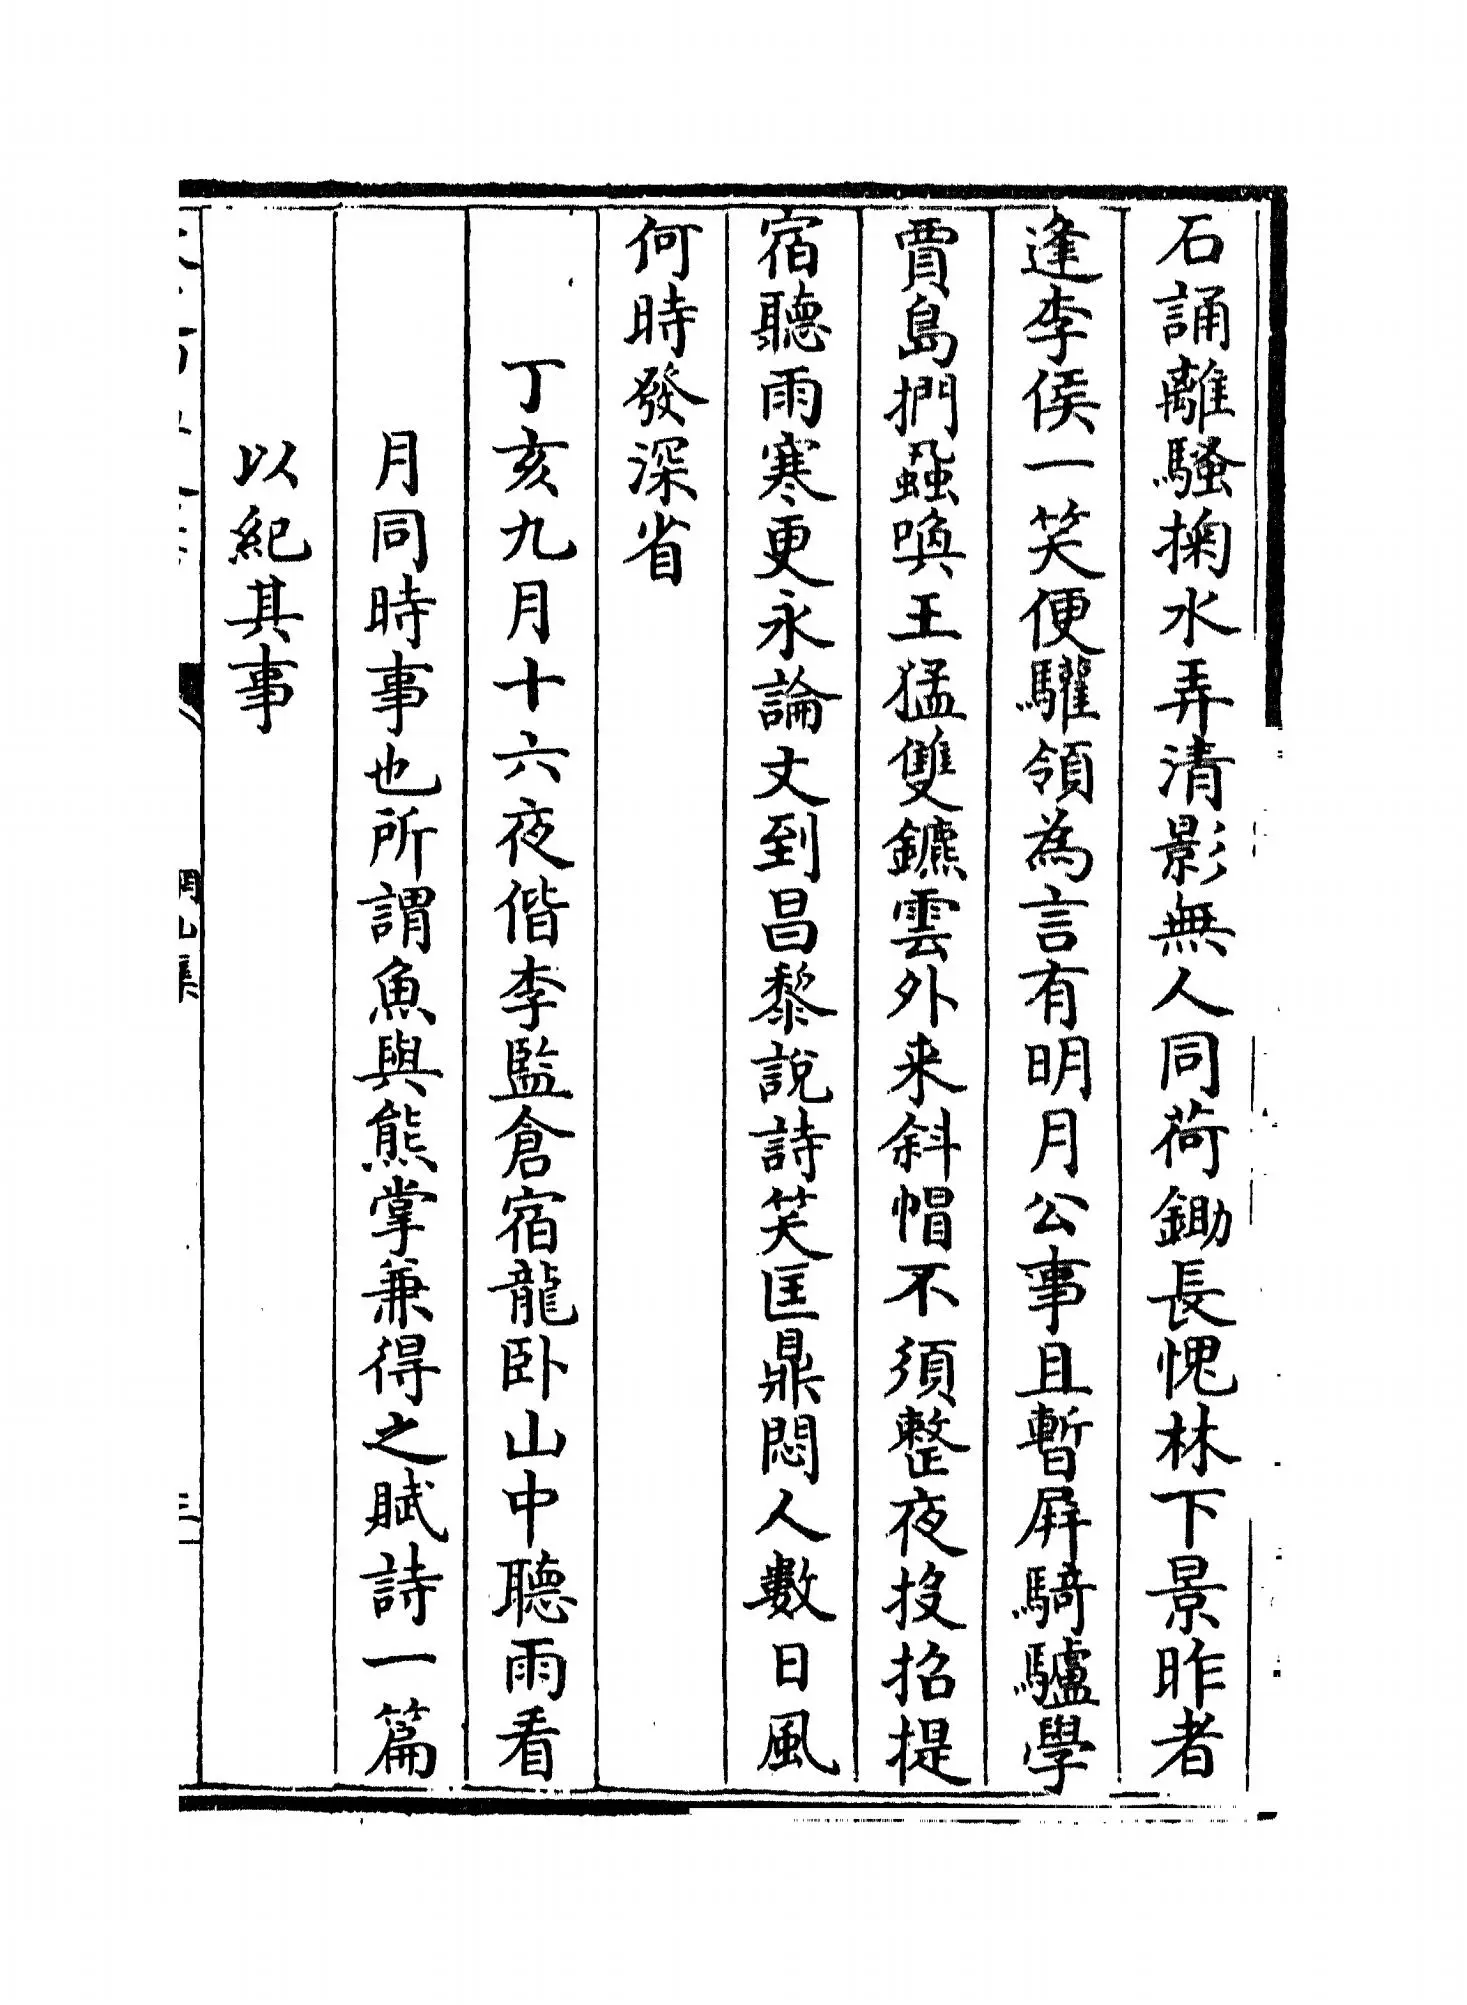 石誦離騷掬水弄清影無人同荷鋤長愧林下景昨者
逢李侯一笑便驩領為言有明月公事且暫屏騎驢學
賈島捫蝨喚王猛雙鑣雲外来斜帽不須整夜投招提
宿聽雨寒更永論文到昌黎說詩笑匡鼎悶人數日風
何時發深省
丁亥九月十六夜偕李監倉宿龍卧山中聽雨看
月同時事也所謂魚與熊掌兼得之賦詩一篇
以紀其事